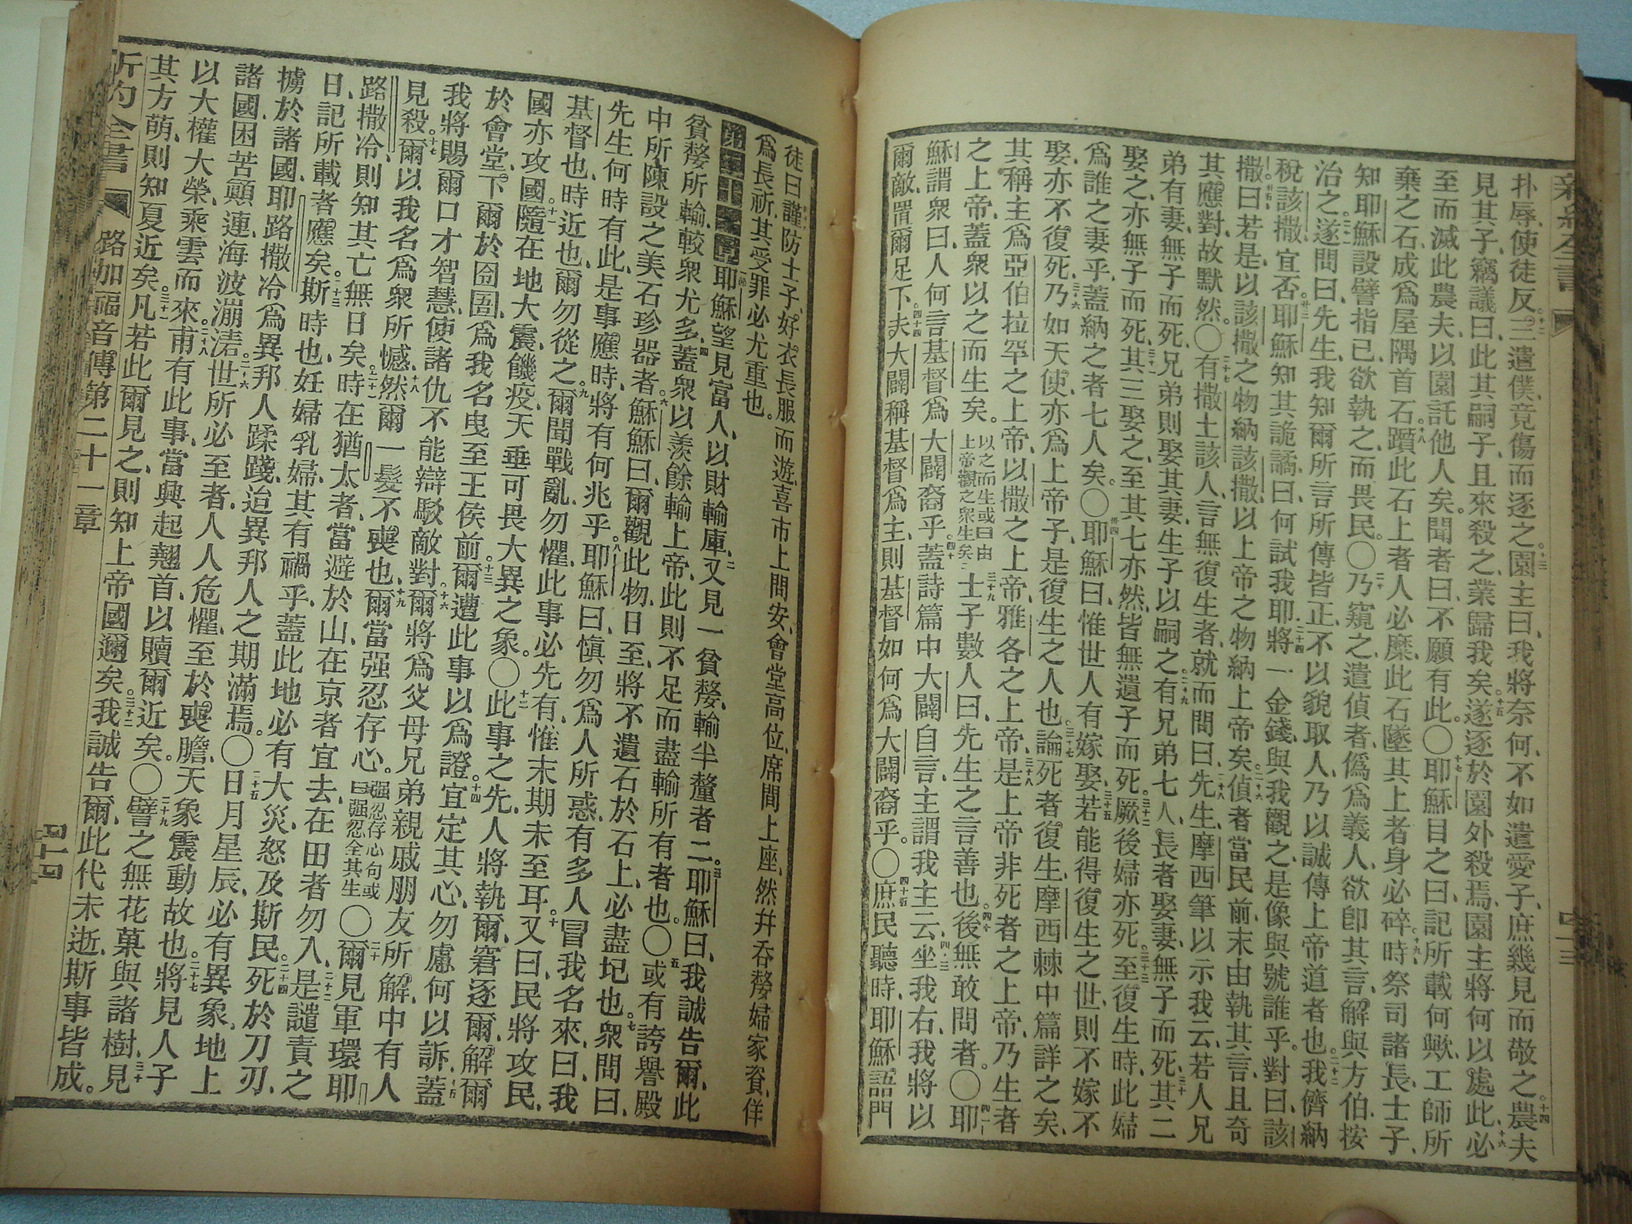 扑辱、使徒反。十二三遣僕、竟傷而逐之。十三園主曰、我將奈何、不如遣愛子、庶幾見而敬之。十四農夫
見其子、竊議曰、此其嗣子、且來殺之、業歸我矣。十五遂逐於園外殺焉、園主將何以處此、十六必
至而滅此農夫、以園託他人矣。聞者曰、不願有此。○十七耶穌目之曰、記所載何歟、工師所
棄之石、成爲屋隅首石。十八躓此石上者、人必糜、此石墜其上者、身必碎。十九時祭司諸長士子、
知耶穌設譬指己、欲執之、而畏民。○二十乃窺之、遣偵者僞爲義人、欲卽其言、解與方伯按
治之。二十一遂問曰、先生、我知爾所言所傳皆正、不以貌取人、乃以誠傳上帝道者也。二十二我儕納
稅該撒宜否。二十三耶穌知其詭譎、曰、何試我耶。二十四將一金錢與我觀之、是像與號誰乎。對曰、該
撒。二十五曰、若是、以該撒之物納該撒、以上帝之物納上帝矣。二十六偵者當民前、未由執其言、且奇
其應對、故默然。○二十七有撒土該人、言無復生者、就而問曰、二十八先生、摩西筆以示我云、若人兄
弟有妻、無子而死、兄弟則娶其妻、生子以嗣之。二十九有兄弟七人、長者娶妻、無子而死。三十其二
娶之、亦無子而死。三十一其三娶之、至其七亦然、皆無遺子而死。三十二厥後婦亦死。三十三至復生時、此婦
爲誰之妻乎、蓋納之者七人矣。○三十四耶穌曰、惟世人有嫁娶。三十五若能得復生之世、則不嫁不
娶、亦不復死。三十六乃如天使、亦爲上帝子、是復生之人也。三十七論死者復生、摩西棘中篇詳之矣、
其稱主爲亞伯拉罕之上帝、以撒之上帝、雅各之上帝。三十八是上帝非死者之上帝、乃生者
之上帝、蓋衆以之而生矣。以之而生或曰由上帝觀之衆生矣三十九士子數人曰、先生之言善也。四十後無敢問者。○四十一耶
穌謂衆曰、人何言基督爲大闢裔乎。四十二蓋詩篇中、大闢自言、主謂我主云、四十三坐我右、我將以
爾敵、置爾足下。四十四夫大闢稱基督爲主、則基督如何爲大闢裔乎。○四十五庶民聽時、耶穌語門
徒曰、謹防士子、好衣長服而遊、喜市上問安、會堂高位、席間上座、然幷呑嫠婦家資、佯
爲長祈、其受罪必尤重也。
第二十一章耶穌望見富人、以財輸庫、二又見一貧嫠、輸半釐者二。三耶穌曰、我誠告爾、此
貧嫠所輸、較衆尤多。四蓋衆以羨餘輸上帝、此則不足、而盡輸所有者也。○五或有誇譽殿
中所陳設之美石珍器者、六耶穌曰、爾觀此物、日至、將不遺石於石上、必盡圮也。七衆問曰、
先生、何時有此、是事應時、將有何兆乎。八耶穌曰、愼勿爲人所惑、有多人冒我名來、曰、我
基督也、時近也、爾勿從之。九爾聞戰亂勿懼、此事必先有、惟末期未至耳。十又曰、民將攻民、
國亦攻國。十一隨在地大震、饑疫、天垂可畏大異之象。○十二此事之先、人將執爾、窘逐爾、解爾
於會堂、下爾於囹圄、爲我名曳至王侯前。十三爾遭此事以爲證。十四宜定其心、勿慮何以訴。十五蓋
我將賜爾口才智慧、使諸仇不能辯駁敵對。十六爾將爲父母兄弟親戚朋友所解、中有人
見殺。十七爾以我名、爲衆所憾。十八然爾一髮不喪也。十九爾當强忍存心。强忍存心句或曰强忍全其生○二十爾見軍環耶
路撒冷、則知其亡無日矣。二十一時在猶太者、當遊於山、在京者宜去、在田者勿入。二十二是譴責之
日、記所載者應矣。二十三斯時也、妊婦乳婦、其有禍乎、蓋此地必有大災、怒及斯民。二十四死於刀刃、
擄於諸國、耶路撒冷爲異邦人蹂踐、迨異邦人之期滿焉。○二十五日月星辰、必有異象、地上
諸國、困苦顚連、海波漰渃。二十六世所必至者、人人危懼、至於喪膽、天象震動故也。二十七將見人子
以大權大榮、乘雲而來。二十八甫有此事、當興起翹首、以贖爾近矣。○二十九譬之無花菓與諸樹、三十見
其方萌、則知夏近矣。三十一凡若此、爾見之、則知上帝國邇矣。三十二我誠告爾、此代未逝、斯事皆成。
新約全書 路加福音傳第二十一章 四十四